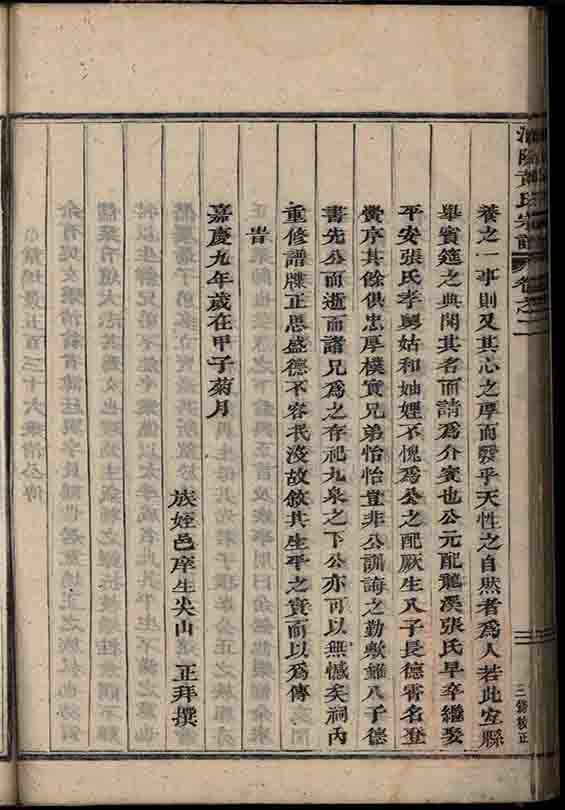 氏宗譜 卷之二
三修校正
養之一事則及其忘之厚而發乎天性之自然者爲人若此宜縣
舉賓筵之典聞其名而請爲介賓也公元配龍溪張氏早卒繼娶
平安張氏孝舅姑和妯娌不愧爲公之配厥生八子長德霄名登
黌序其餘俱忠厚樸實兄弟怡怡豈非公訓誨之勤歟雖八子德
書先公而逝而諸兄爲之存祀九泉之下公亦可以無憾矣祠內
重修譜牒正思盛德不容氓沒故敘其生平之實而以爲傳
旹
嘉慶九年歲在甲子菊月
族姪邑庠生尖山 正拜撰